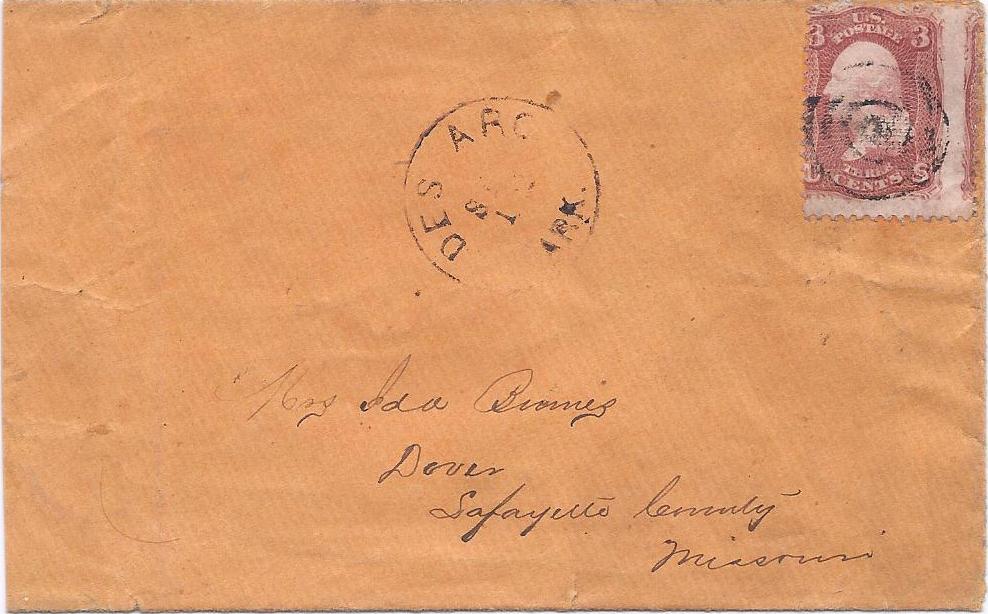 U.S.
POSTAGE
3 3
CENTS
DES ARC
ARK.
Mrs Ida
Dover
Lafayette County
Missouri